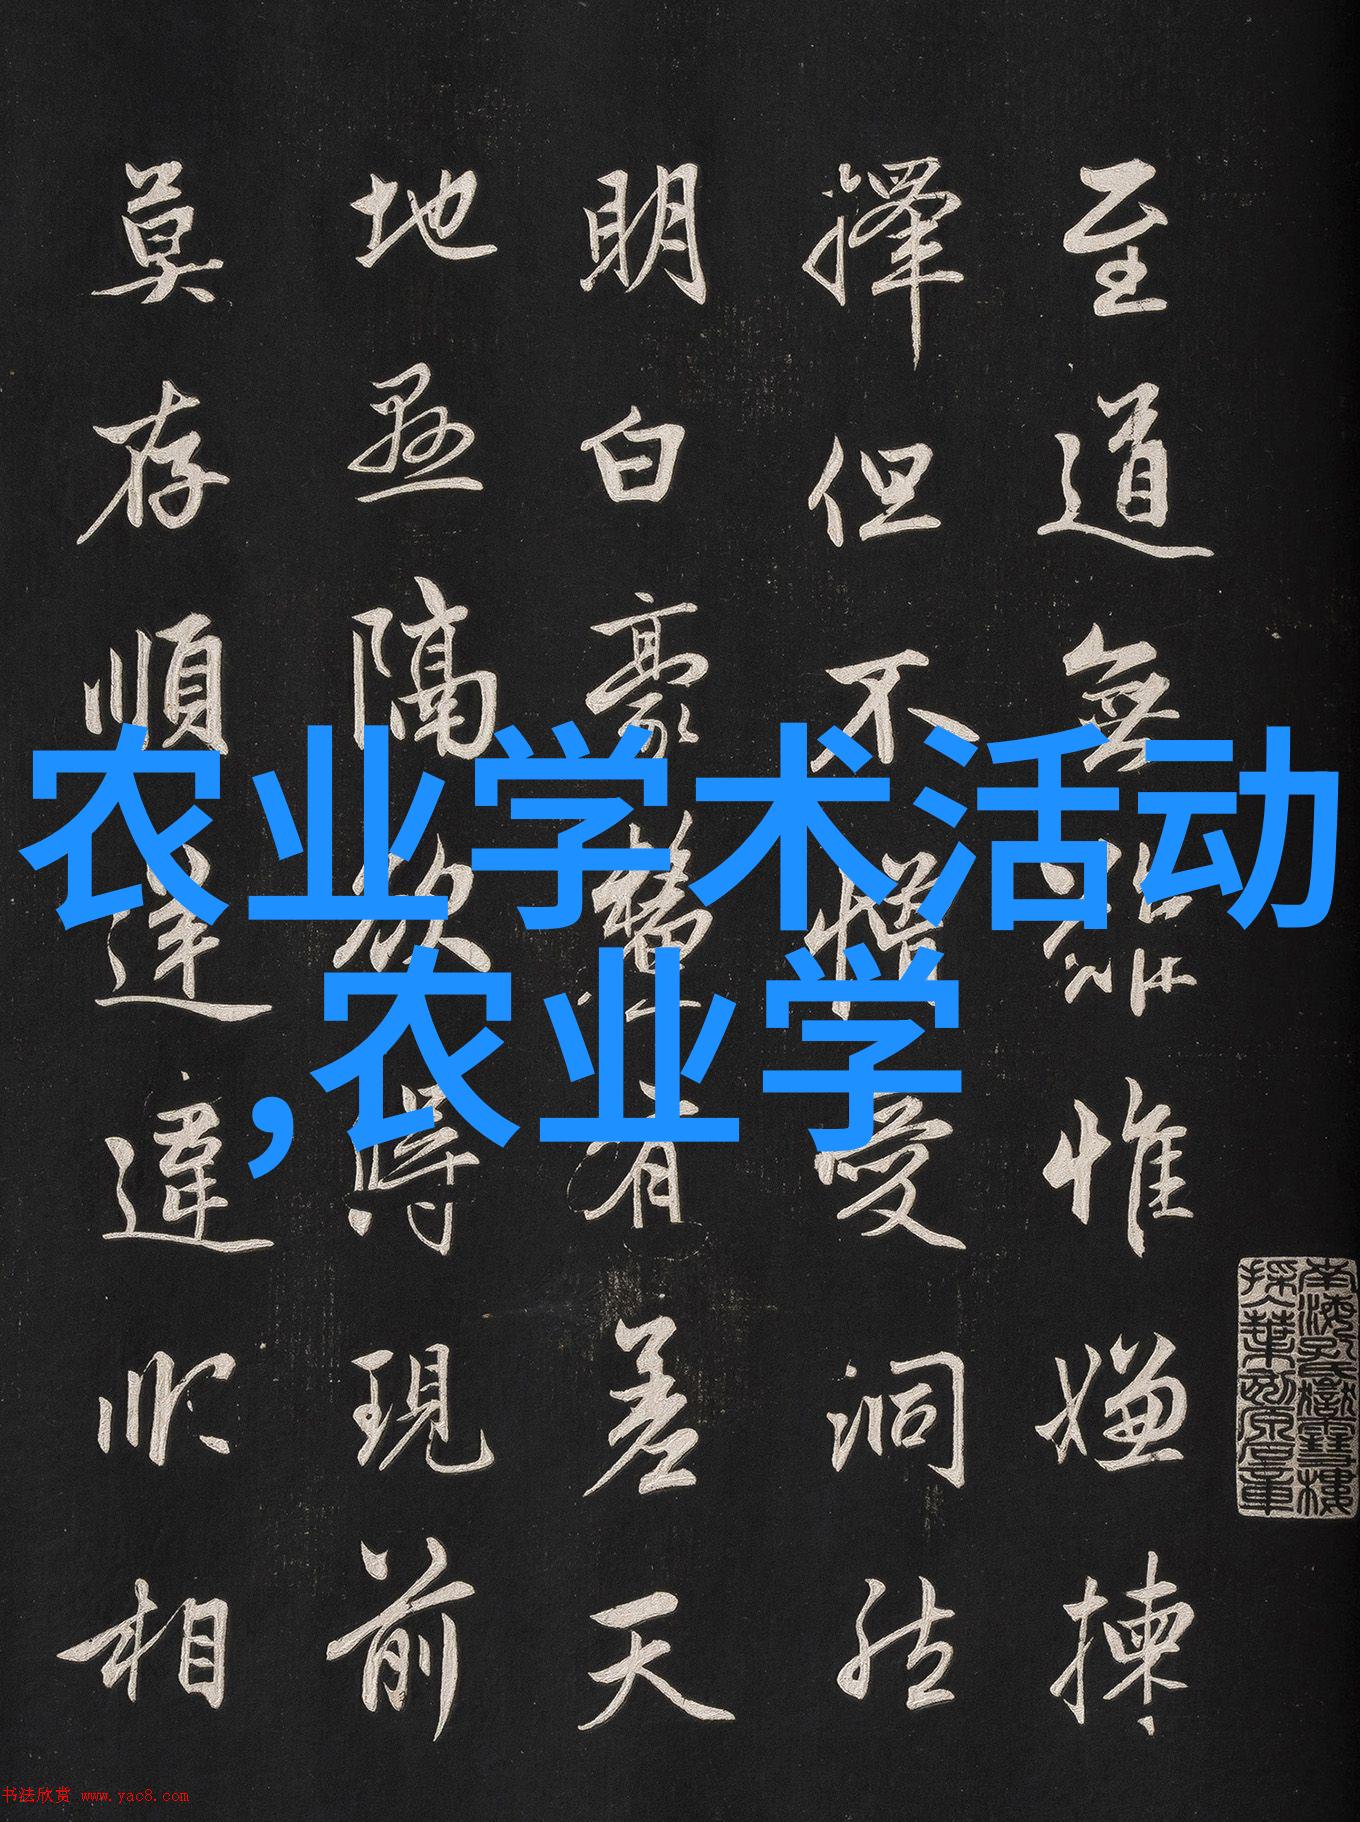 至道無難惟嫌揀
擇但不憎愛洞然
明白豪釐有差天
地懸隔欲得現前
莫存順逆違順相
农业学术活动
,农业学
书法欣赏 www.yac8.com